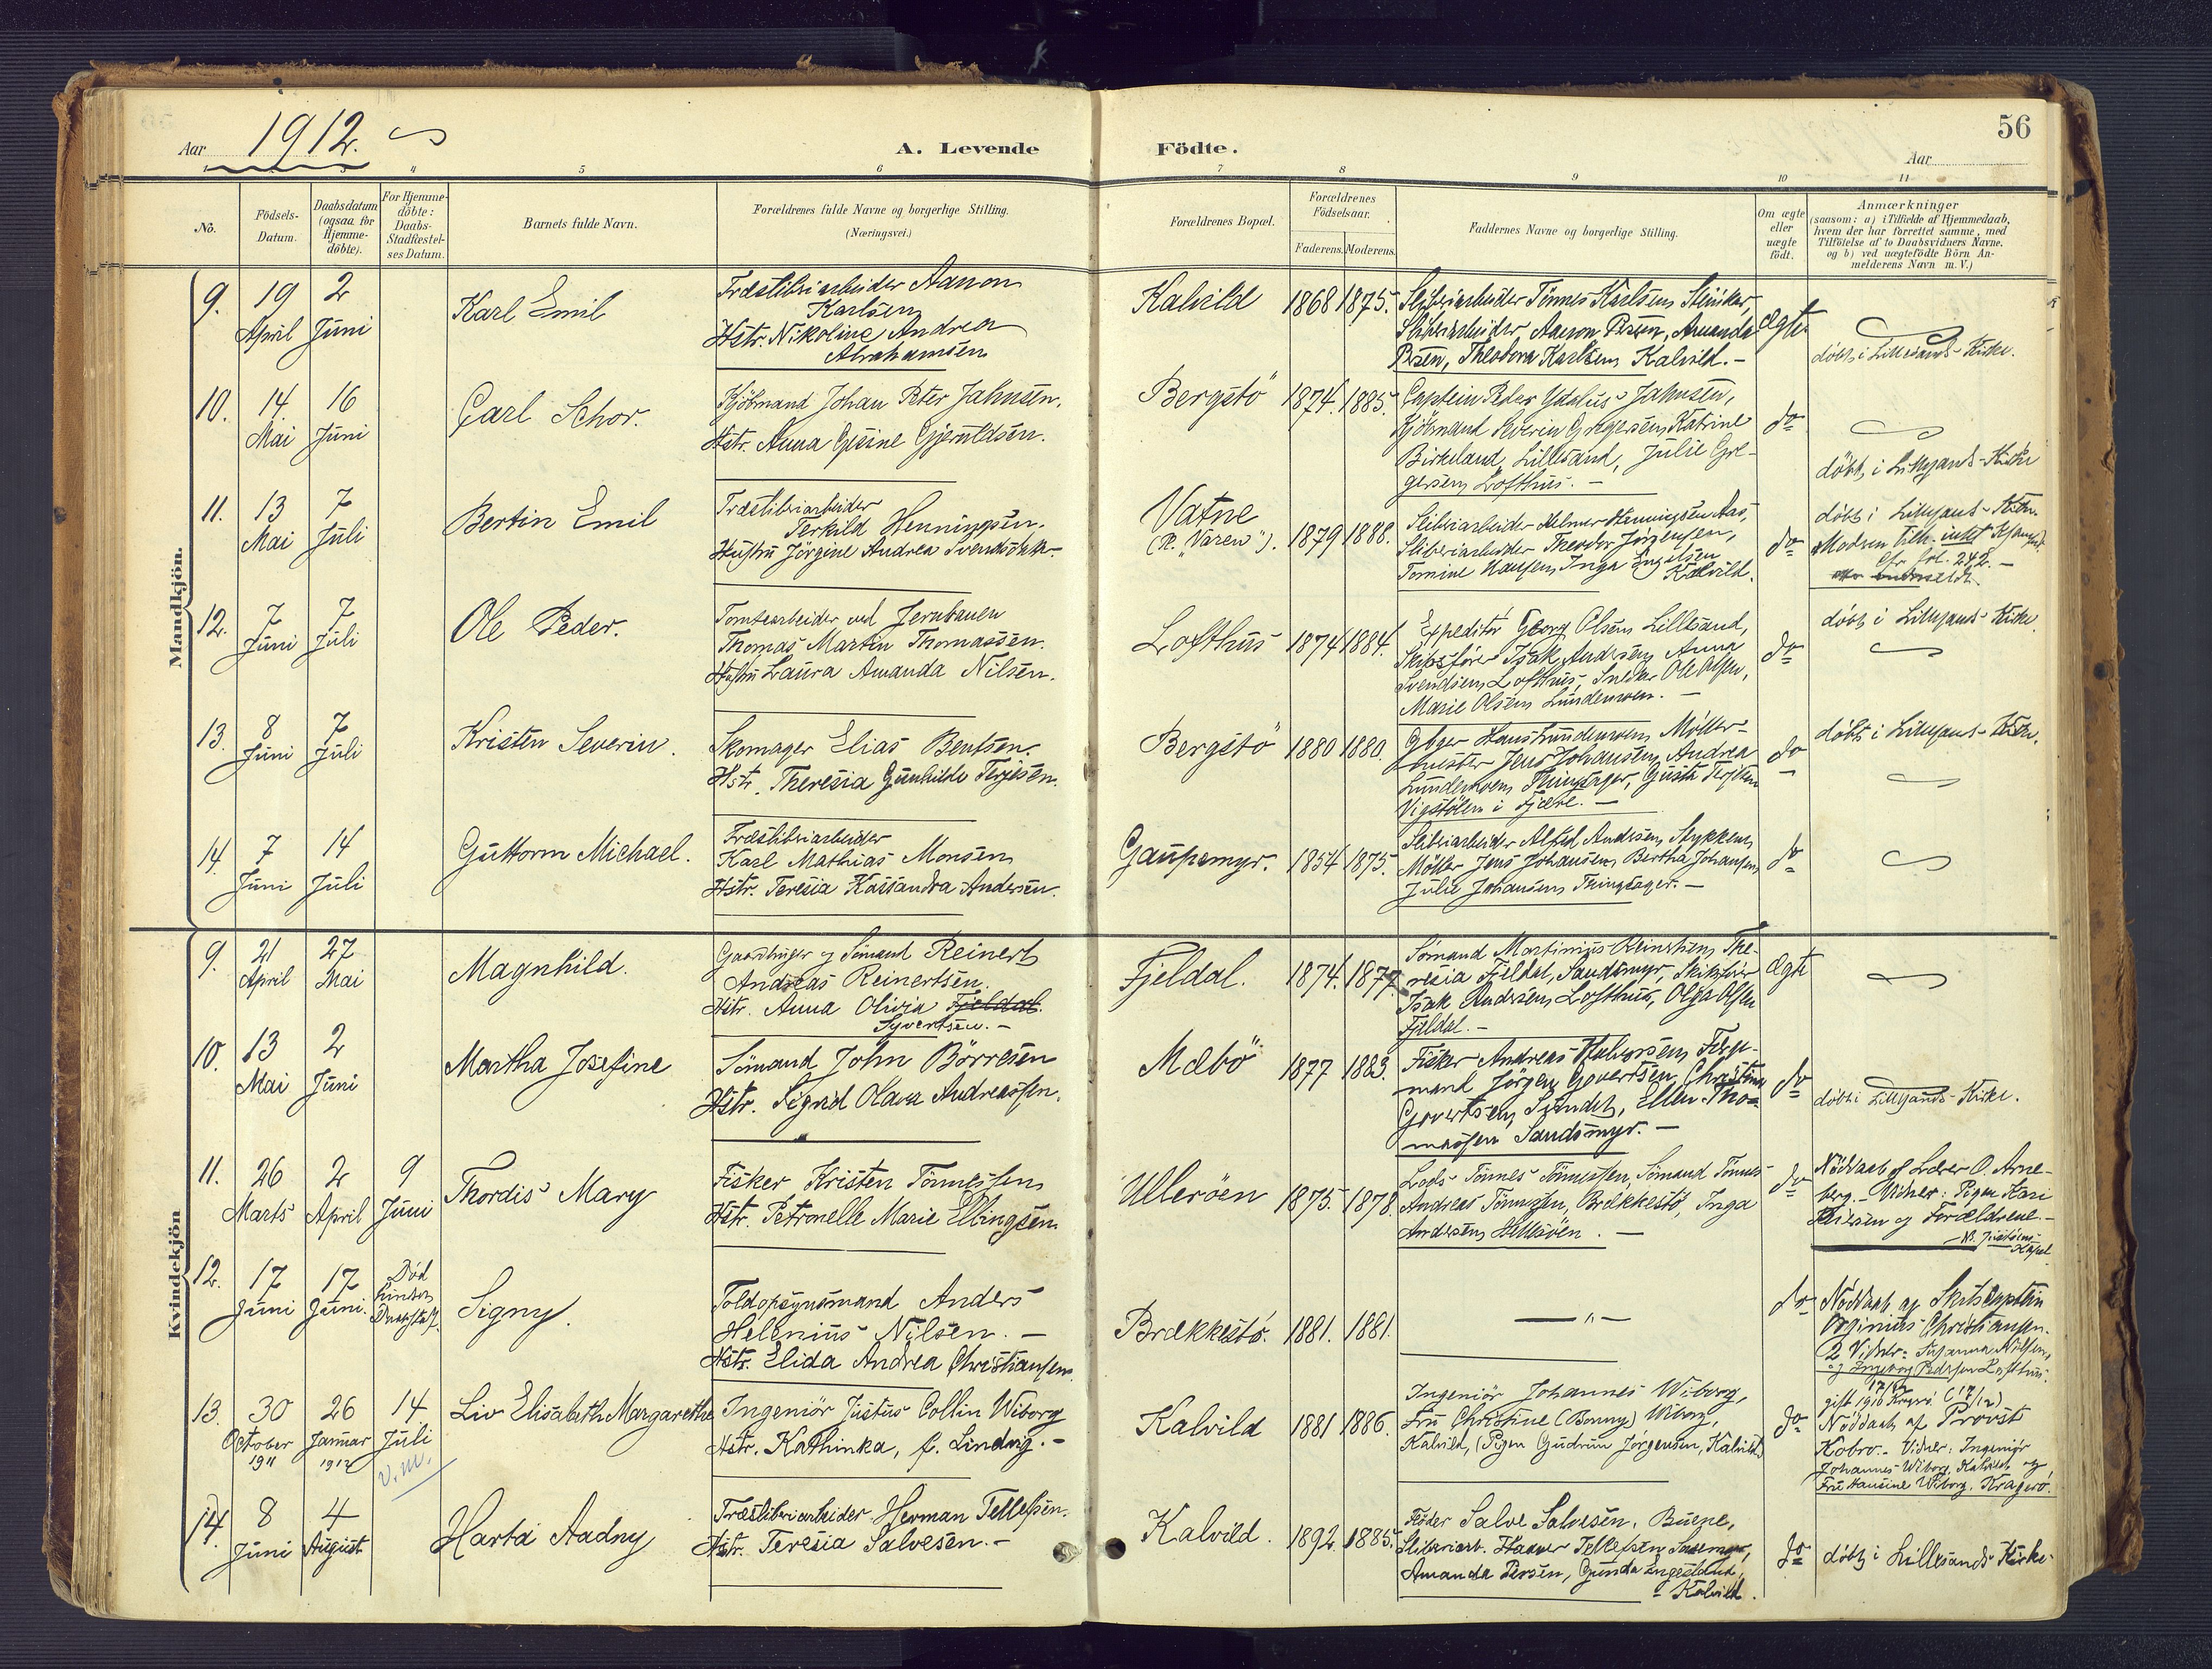 Aar 1912.
A. Levende Födte.
Aar
56
4 5 6 7 8 9 10 11
No.
Födsels-
Datum.
Daabsdatum
(ogsaa for
Hjemme-
döbte).
For Hjemme-
döbte:
Daabs-
Stadfæstel-
ses Datum.
Barnets fulde Navn.
Forældrenes fulde Navne og borgerlige Stilling.
(Næringsvei.)
Forældrenes Bopæl.
Forældrenes
Födselsaar.
Faderens. Moderens.
Faddernes Navne og borgerlige Stilling.
Om ægte
eller
uægte
födt.
Anmærkninger
(saasom: a) i Tilfælde af Hjemmedaab,
hvem der har forrettet samme, med
Tilföielse af to Daabsvidners Navne.
og b) ved uægtefödte Börn An-
melderens Navn m. V.)
Mandkjön.
9. 19 April
2 Juni
Karl Emil
Træsliberiarbeider Aanon
Karlsen
Hstr. Nikoline Andrea
Abrahamsen
Kalvild
1868 1875.
Sliberiarbeider Tönnes Karlsen,
Sliberiarbeider Aanon Amanda
Theodora Karlsen, Kalvild. -
Ægte
döbt i Lillesands Kirke.
10. 14. Mai
16 Juni
Carl Schor.
Kjöbmand Johan Peter Jahnsen.
Hstr. Anna Gjeruldsen.
Bergstö
1874. 1885.
Captein Peder Jahnsen,
Kjöbmand Gregersen, Katrine
Birkeland, Lillesand, Julie Gre-
gersen, Lofthus. -
do
döbt i Lillesands Kirke
11. 13 Mai
7 Juli
Bertin Emil
Træsliberiarbeider
Terkild Henningsen.
Hustru Jörgine Andrea
Vatne
1879 1888.
Sliberiarbeider Helmer Henningsen Aas,
Sliberiarbeider Theodor Jörgensen,
Tomine Hansen, Inga
Kalvild.
do
döbt i Lillesands Kirke.
fol. 242. -
12. 7 Juni
7 Juli
Ole Peder.
Tomtearbeider ved Jernbanen
Thomas Martin Thomassen.
Hustru Laura Amanda Nilsen.
Lofthus
1874 1884.
Expeditör Georg Olsen, Lillesand,
Skibsförer Isak Andersen, Anna
Svendsen, Lofthus, Ole Olsen,
Marie Olsen,
do
döbt i Lillesands Kirke
13. 8 Juni
7 Juli
Kristen Severin.
Skomager Elias Bentsen.
Hstr. Theresia Gunhilde Terjesen.
Bergstö
1880 1880.
Gbger Hans Möller-
mester Jens Johansen, Andrea
Tingsager,
i Fjære. -
do
döbt i Lillesands Kirke.
14. 7 Juni
14 Juli
Guttorm Michael.
Træsliberiarbeider
Karl Mathias Monsen
Hstr. Teresia Kassandra Andersen.
Gaupemyr.
1854 1875.
Sliberiarbeider Alfred Andersen,
Möller Jens Johansen, Bertha Johansen,
Julie Johansen, Tingsager. -
do
Kvindekjön
9. 21 April
27 Mai
Magnhild.
Gaardbruger og Sömand Reinert
Andreas Reinertsen.
Hstr. Anna Olivia Fjeldal.
Syvertsen. -
Fjeldal.
1874. 1877
Sömand Martinius Reinertsen, The-
resia Fjeldal, Sandsmyr, Skibsförer
Isak Andersen, Lofthus, Olga Olsen
Fjeldal. -
Ægte
10. 13 Mai
2 Juni
Martha Josefine
Sömand John Börresen
Hstr. Sigrid Olava Andreassen.
Mæbö
1877 1883.
Fisker Andreas Halvorsen,
mand Jörgen Govertsen, Christine
Govertsen, Sundet, Ellen Tho-
massen Sandsmyr. -
do
döbt i Lillesands Kirke.
11. 26 Marts
2 April
9 Juni
Thordis Mary
Fisker Kristen Tönnessen
Hstr. Petronelle Marie Ellingsen
Ulleröen
1875 1878.
Lods Tönnes Tönnessen, Sömand Tönnes
Andreas Tönnesen, Brækkestö, Inga
Andersen, Hellesöen. -
do
Nöddaab af Lærer O. Arne-
berg. - Vidner: Pigen Kari
og Forældrene. -
Kapel
12. 17 Juni
17 Juni.
Död
hindrer
Signy.
Toldopsynsmand Anders
Helenius Nilsen. -
Hstr. Elida Andrea Christiansen.
Brækkestö.
1881. 1881.
— " —
do
Nöddaab af Skibscaptein
Christiansen.
2 Vidner: Susanna Nilsen,
og Ingeborg Pedersen Lofthus.
13. 30 October 1911
26 Januar 1912
14 Juli
v.m.
Liv Elisabeth Margarethe
Ingeniör Justus Collin Wiborg
Hstr. Kathinka, f. Lindvig. -
Kalvild
1881 1886.
Ingeniör Johannes Wiborg,
Fru Christine (Bonny) Wiborg,
Kalvild, (Pigen Gudrun Jörgensen, Kalvild)
do
Nöddaab af Provst
Kobro. - Vidner: Ingeniör
Johannes Wiborg, Kalvild, og
Fru Hansine Wiborg, Kragerö.
14. 8 Juni
4 August
Harta Aadny
Træsliberiarbeider Herman Tellefsen.
Hstr. Teresia Salvesen. -
Kalvild.
1892. 1885.
Salve Salvesen,
Sliberiarb. Tellefsen,
Amanda Gunda
Kalvild.
do
döbt i Lillesands Kirke.